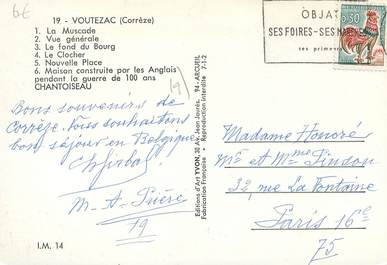 6€
19. - VOUTEZAC (Corrèze)
1. La Muscade
2. Vue générale
3. Le fond du Bourg
4. Le Clocher
5. Nouvelle Place
6. Maison construite par les Anglais
pendant la guerre de 100 ans
CHANTOISEAU
19
Bons souvenirs de
Corrèze. Nous souhaitons
bon séjour en Belgique
M-A-Prière
19
I.M. 14
Editions d'Art YVON, 30 Av. Jean Jaurès, 94 - ARCUEIL
Fabrication Française - Reproduction interdite 7-1-2
OBJAT
SES FOIRES - SES MARCHÉS
ses primeurs
0,30
Madame Honoré
Mr et Mme Pindou
32, rue La Fontaine
Paris 16e
75